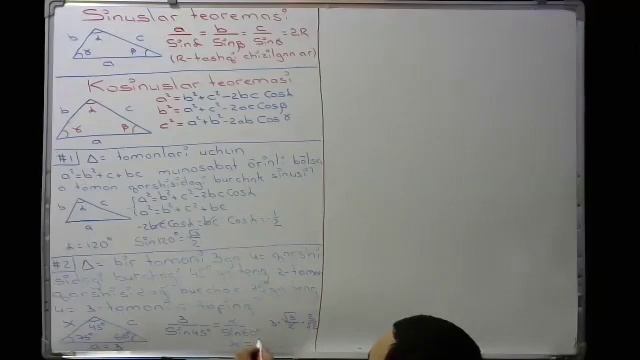 Sinuslar teoremasi
b α c γ β a
a/Sinα = b/Sinβ = c/Sinγ = 2R
(R-tashqi chizilgan
Kosinuslar teoremasi
b α c γ β a
a² = b² + c² - 2bc Cosα
b² = a² + c² - 2ac Cosβ
c² = a² + b² - 2ab Cosγ
#1 Δ = tomonlari uchun
a² = b² + c² + bc munosabat o'rinli bo'lsa
a tomon qarshisidagi burchak sinusi?
b α c a
a² = b² + c² - 2bc Cosα
a² = b² + c² + bc
-2bc Cosα = bc Cosα = -1/2
α = 120° Sin120° = √3/2
#2 Δ = bir tomoni 3ga u = qarshi
sidagi burchagi 45° ga teng 2-tomon
qarshisidagi burchagi
u = 3-tomonni toping
x 45° c 75° 60° a = 3
3/Sin45° = x/Sin60°
x =